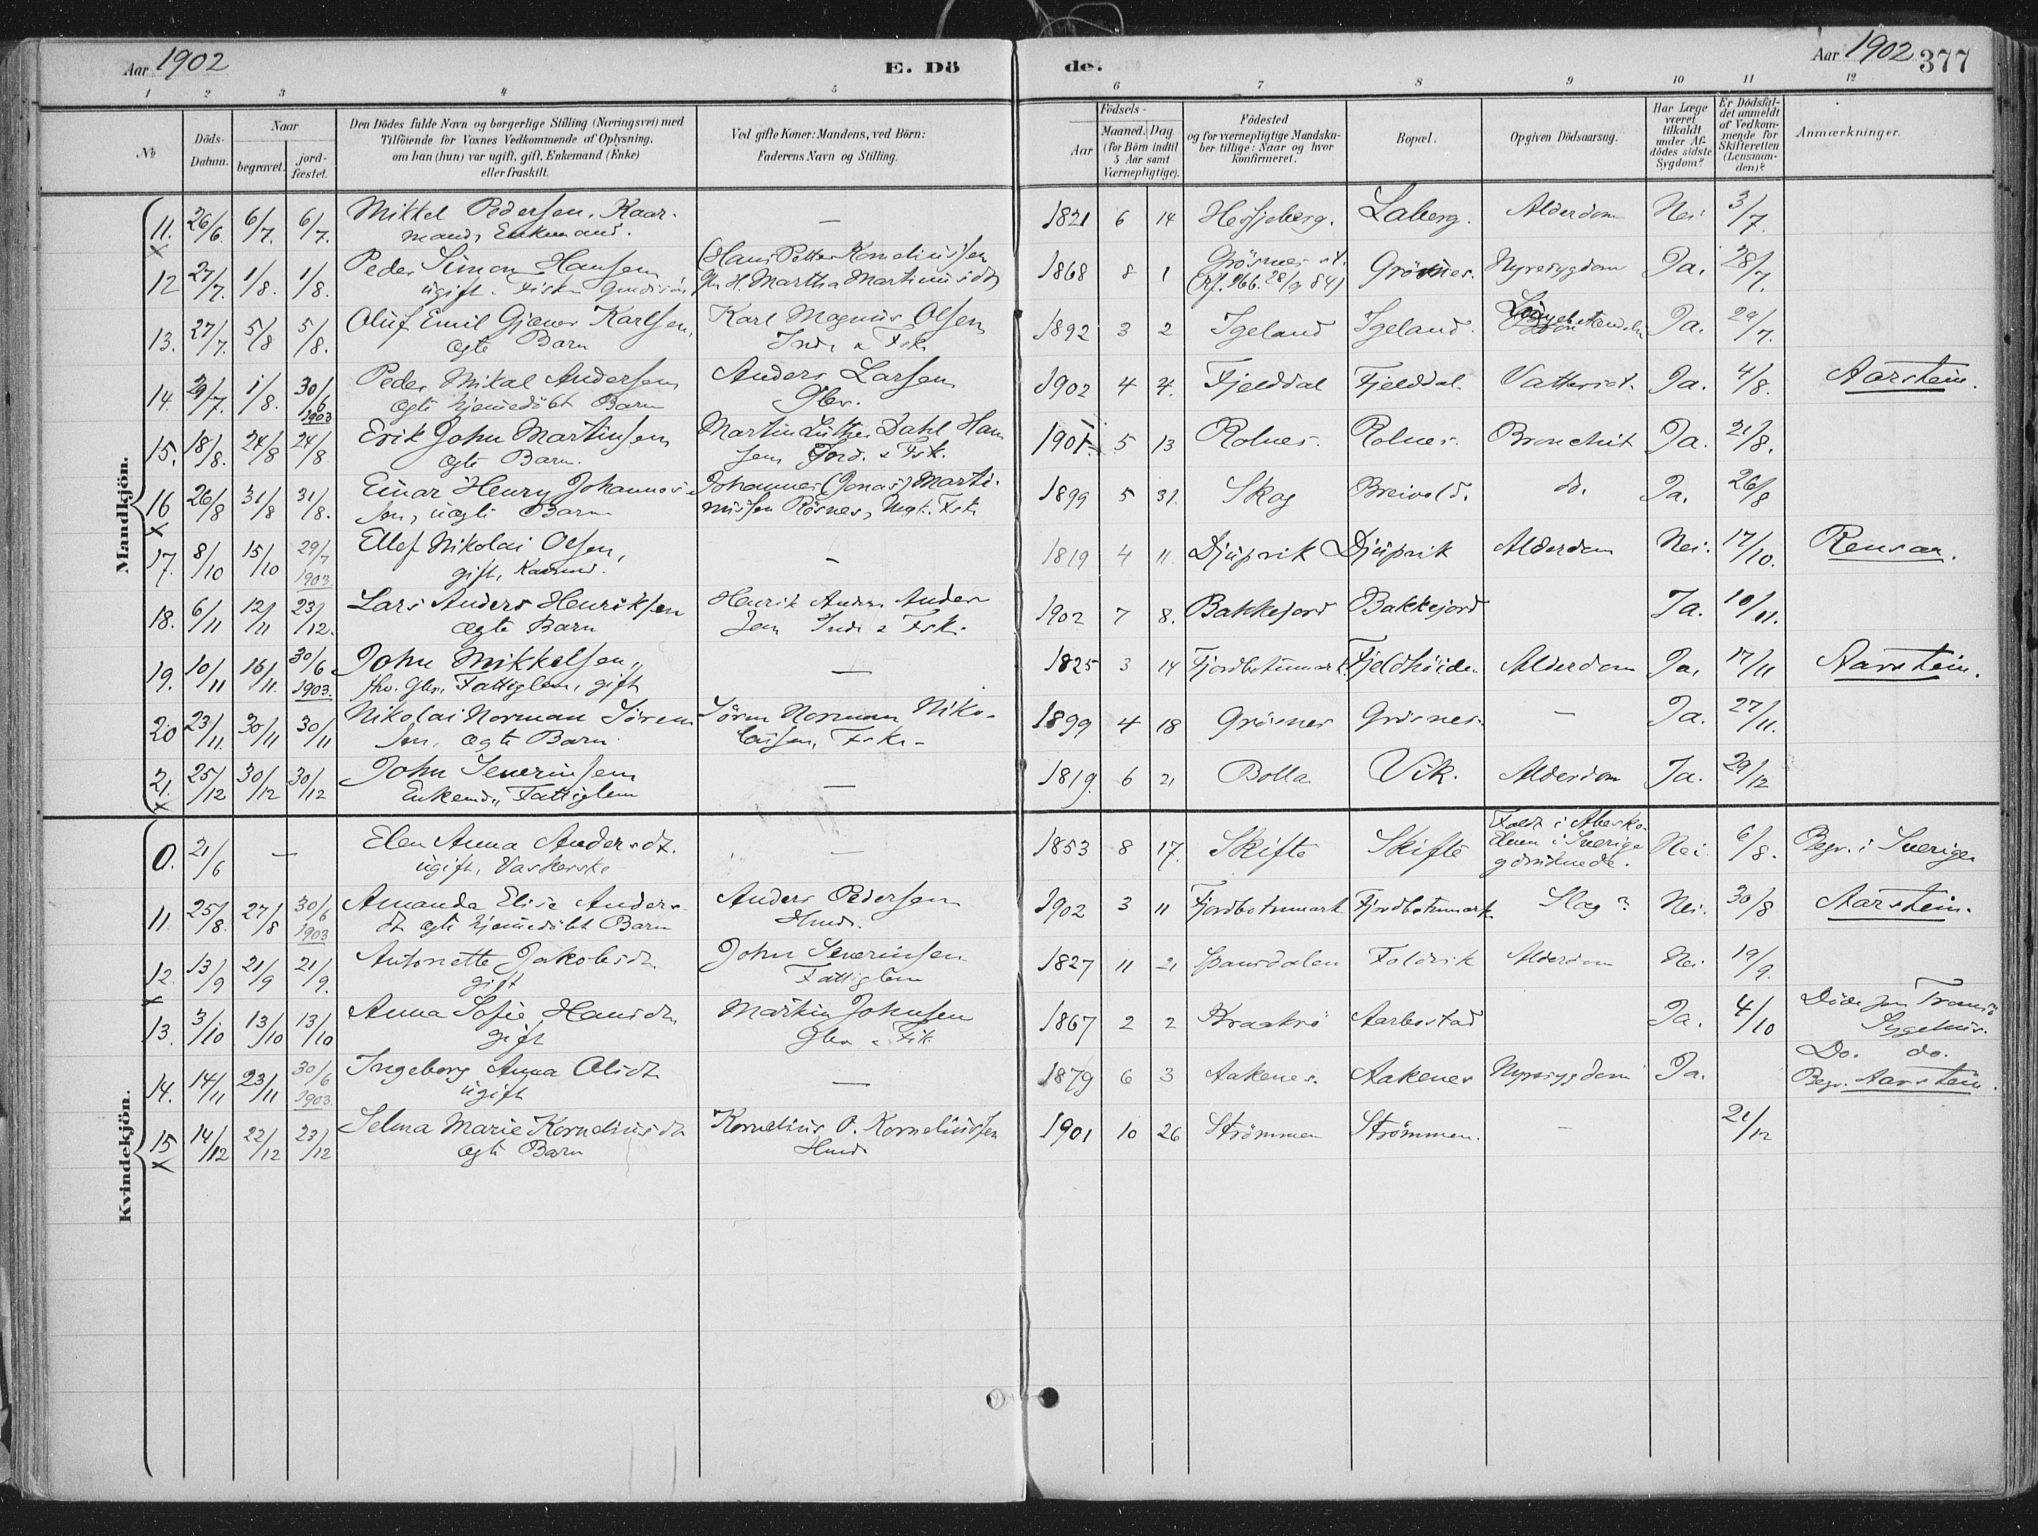 Aar 1902
E. Dö
de.
Aar 1902
377
1 2 3 4 5 6 7 8 9 10 11 12
№
Döds-Datum.
Naar
begravet.
jord-fæstet.
Den Dödes fulde Navn og borgerlige Stilling (Næringsvei) med
Tilföiende for Voxnes Vedkommende af Oplysning,
om han (hun) var ugift, gift, Enkemand (Enke)
eller fraskilt.
Ved gifte Koner: Mandens, ved Börn:
Faderens Navn og Stilling.
Födsels-
Aar
Maaned. Dag
(for Börn indtil
5 Aar samt
Værnepligtige).
Födested
og for værnepligtige Mandska-
ber tillige: Naar og hvor
konfirmeret.
Bopæl.
Opgiven Dödsaarsag.
Har Læge
været
tilkaldt
under Af-
dödes sidste
Sygdom?
Er Dödsfal-
det anmeldt
af Vedkom-
mende for
Skifteretten
(Lensman-
den)?
Anmærkninger.
Mandkjön.
11. 26/6 6/7. 6/7. Mikkel Pedersen, Kaar-
mand, Enkemand. — 1821 6 14 Hessjeberg. Laberg. Alderdom Nei 3/7.
12 27/7. 1/8. 1/8. Peder Simon Hansen
ugift. Hans Petter Korneliussen
Martha Martinusdt 1868 8 1 Grösnes Grösnes. Nyresygdom Ja. 28/7.
13. 27/7. 5/8 5/8. Oluf Emil Gjæver Karlsen,
ægte Barn Karl Magnus Olsen
Indr & Fsk. 1892 3 2 Igeland Igeland. Ja. 29/7.
14. 29/7. 1/8. 30/6 1903 Peder Mikal Andersen
ægte hjemmedöbt Barn Anders Larsen
Gbr. 1902 4 4. Fjelddal Fjelddal. Vattersot. Ja. 4/8. Aarstein.
15. 18/8. 24/8 24/8 Erik John Martinsen
ægte Barn. Martin Luther Dahl Han
sen Jord. & Fsk. 1901. 5 13 Rolnes. Rolnes. Bronchit Ja. 21/8.
16 26/8 31/8 31/8. Einar Henry Johannes-
sen, uægte Barn Johannes (Jonas) Marti-
nussen Rösnes, Ungk. Fsk. 1899 5 31. Skog Breivold. do. Ja. 26/8
17. 8/10 15/10 29/7 1903. Ellef Nikolai Olsen,
gift, Kaarmd. — 1819 4 11 Djupvik Djupvik Alderdom Nei. 17/10. Rensaa.
18. 6/11 12/11 23/12. Lars Anders Henriksen
ægte Barn Henrik Anders Ander
sen Indr & Fsk. 1902 7 8. Bakkejord Bakkejord Ja. 10/11.
19. 10/11 16/11. 30/6 1903. John Mikkelsen,
fhv. Gbr., Fattiglem, gift — 1825 3 14 Fjordbotnmark. Fjeldhöiden Alderdom Ja. 17/11 Aarstein.
20 23/11. 30/11 30/11 Nikolai Norman Sören
sen, ægte Barn. Sören Norman Niko-
laisen, Fsk. 1899 4 18 Grösnes Grösnes. — Ja. 27/11.
21. 25/12 30/12 30/12 John Severinsen
Enkemd., Fattiglem — 1819 6 21 Bolla Vik. Alderdom Ja. 29/12
Kvindekjön.
0. 21/6 — Elen Anna Andersdt.
ugift, Vaskerske — 1853 8 17. Skifte Skifte Faldt i Abesko-
Elven i Sverige
og druknede. Nei 6/8. Begr. i Sverige
11 25/8. 27/8 30/6 1903 Amanda Elise Anders-
dt ægte hjemmedöbt Barn Anders Pedersen
Hmd. 1902 3 11 Fjordbotnmark Fjordbotnmark. Slag? Nei. 30/8 Aarstein.
12. 13/9 21/9 21/9. Antonette Jakobsdt
gift John Severinsen
Fattiglem 1827 11 21 Foldvik Alderdom Nei 19/9.
13. 3/10 13/10 13/10 Anna Sofie Hansdt
gift Martin Johnsen
Gbr & Fsk. 1867 2 2 Kraakrö Aarbostad Ja. 4/10 Döde paa Tromsö
Sygehus.
14. 14/11 23/11 30/6 1903. Ingeborg Anna Olsdt
ugift — 1879 6 3 Aakenes. Aakenes Nyresygdom Ja. Do. do.
Begr. Aarstein.
15 14/12 22/12 23/12 Selma Marie Korneliusdt
ægte Barn Kornelius O. Korneliussen
Hmd. 1901 10 26 Strömmen Strömmen. — 21/12